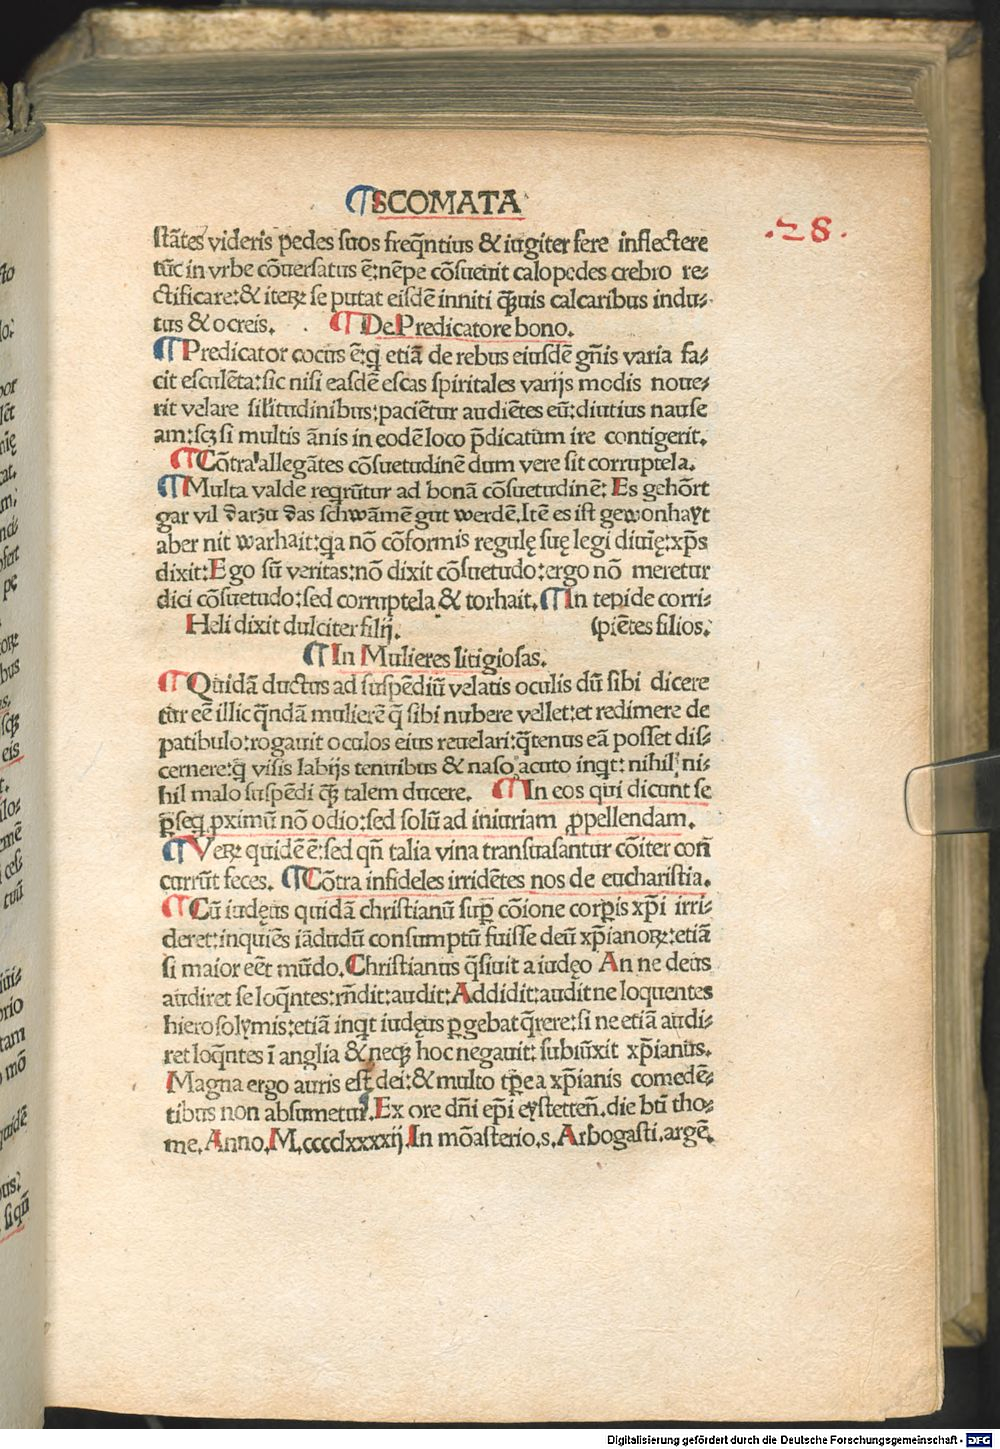 ¶SCOMATA
.28.
stātes videris pedes suos freq̄ntius & iugiter fere inflectere
tūc in vrbe cōuersatus ē:nēpe cōsueuit calopedes crebro re⸗
ctificare:& iteꝝ se putat eisdē inniti q̄ȝuis calcaribus indu⸗
tus & ocreis. . ¶De Predicatore bono.
¶Predicator cocus ē:q̄ etiā de rebus eiusdē gn̄is varia fa⸗
cit esculēta:sic nisi easdē escas spiritales varijs modis noue⸗
rit velare sil'itudinibus:paciētur audiētes eū:diutius nause
am:scȝ si multis ānis in eodē loco p̄dicatum ire contigerit.
¶Cōtra allegātes cōsuetudinē dum vere sit corruptela.
¶Multa valde reqrūtur ad bonā cōsuetudinē: Es gehȫrt
gar vil darzu das schwāmē gut werdē.Itē es ist gewonhayt
aber nit warhait:qa nō cōformis regulę suę legi diuię:xp̄s
dixit:Ego sū veritas:nō dixit cōsuetudo:ergo nō meretur
dici cōsuetudo:sed corruptela & torhait.¶In tepide corri⸗
Heli dixit dulciter filij. (piētes filios.
¶In Mulieres litigiosas.
¶Quidā ductus ad suspēdiū velatis oculis dū sibi dicere
tur eē illic q̄ndā mulierē q̄ sibi nubere vellet:et redimere de
patibulo:rogauit oculos eius reuelari:q̄tenus eā posset dis⸗
cernere:q̄ visis labijs tenuibus & naso acuto inqt: nihil ni⸗
hil malo suspēdi q̄ȝ talem ducere. ¶In eos qui dicunt se
ꝑseq ꝓximū nō odio:sed solū ad iniuriam ꝓpellendam.
¶Veꝝ quidē ē:sed qn̄ talia vina transuasantur cōiter con̄
currūt feces. ¶Cōtra infideles irridētes nos de eucharistia.
¶Cū iudęus quidā christianū suꝑ cōione corꝑis xp̄i irri⸗
deret:inquiēs iādudū consumptū fuisse deū xp̄ianoꝝ:etiā
si maior eēt mūdo.Christianus q̄siuit a iudęo An ne deus
audiret se loq̄ntes:rn̄dit:audit:Addidit:audit ne loquentes
hierosolymis:etiā inqt iudęus ꝑgebat q̄rere:si ne etiā audi⸗
ret loq̄ntes ī anglia & necȝ hoc negauit: subiūxit xp̄ianus.
Magna ergo auris est dei:& multo tp̄e a xp̄ianis comedē⸗
tibus non absumetur.Ex ore dn̄i ep̄i eystetten̄.die bt̄i tho⸗
me.Anno.M.ccccclxxxxij.In mōasterio.s.Arbogasti.argē.
Digitalisierung gefördert durch die Deutsche Forschungsgemeinschaft - DFG